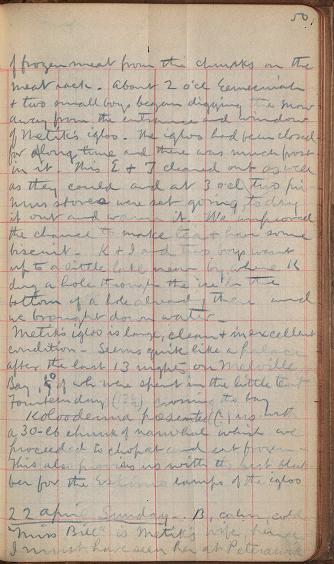 50.
of frozen meat from the chunks on the
meat rack. About 2 ocl
& two small boys began digging the snow
away from the entrance and window
of Metiks igloo. The igloo had been closed
for a long time and there was much frost
in it. This E & T cleaned out as well
as they could and at 3 ocl two
stoves were set going to dry
it out and warm it. We improved
the chance to make tea & have some
biscuit. K & I and two boys went
up to a little lake near by where K
dug a hole through the ice in the
bottom of a hole already there and
we brought down water.
Metiks igloo is large, clean & in excellent
condition - Seems quite like a palace
after the last 13 nights on Melville
Bay, 10 of wh. were spent in the little tent
day crossing the bay
presented us with
a 30-lb chunk of narwhal which we
proceeded to chop at and eat frozen.
This also us with the best blub
ber for the Eskimo lamps of the igloo
22 April Sunday - B, calm, cold
"Miss Bill" is Metik's wife, hence
I must have seen her at